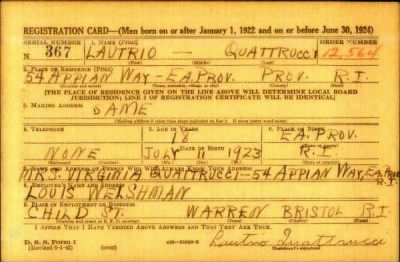 REGISTRATION CARD—(Men born on or after January 1, 1922 and on or before June 30, 1924)
SERIAL NUMBER 1. NAME (Print) ORDER NUMBER
N 367 LAUTRIO — QUATTRUCCI 12,564
(First) (Middle) (Last)
2. PLACE OF RESIDENCE (Print)
54 APPIAN WAY - EA. PROV. PROV. R.I.
(Number and street) (Town, township, village, or city) (County) (State)
[THE PLACE OF RESIDENCE GIVEN ON THE LINE ABOVE WILL DETERMINE LOCAL BOARD
JURISDICTION; LINE 2 OF REGISTRATION CERTIFICATE WILL BE IDENTICAL]
3. MAILING ADDRESS
SAME
(Mailing address if other than place indicated on line 2. If same insert word same)
4. TELEPHONE 5. AGE IN YEARS 6. PLACE OF BIRTH
18 EA. PROV.
DATE OF BIRTH
NONE JULY 11 1923 R.I.
(Exchange) (Number) (Mo.) (Day) (Yr.) (State or country)
7. NAME AND ADDRESS OF PERSON WHO WILL ALWAYS KNOW YOUR ADDRESS
MRS. VIRGINIA QUATTRUCCI - 54 APPIAN WAY, EA. PROV.
8. EMPLOYER'S NAME AND ADDRESS
LOUIS WELSHMAN
9. PLACE OF EMPLOYMENT OR BUSINESS
CHILD ST. WARREN BRISTOL R.I.
(Number and street or R. F. D. number) (Town) (County) (State)
I AFFIRM THAT I HAVE VERIFIED ABOVE ANSWERS AND THAT THEY ARE TRUE.
D. S. S. Form 1
(over) Lautrio Quattrucci
(Registrant's signature)